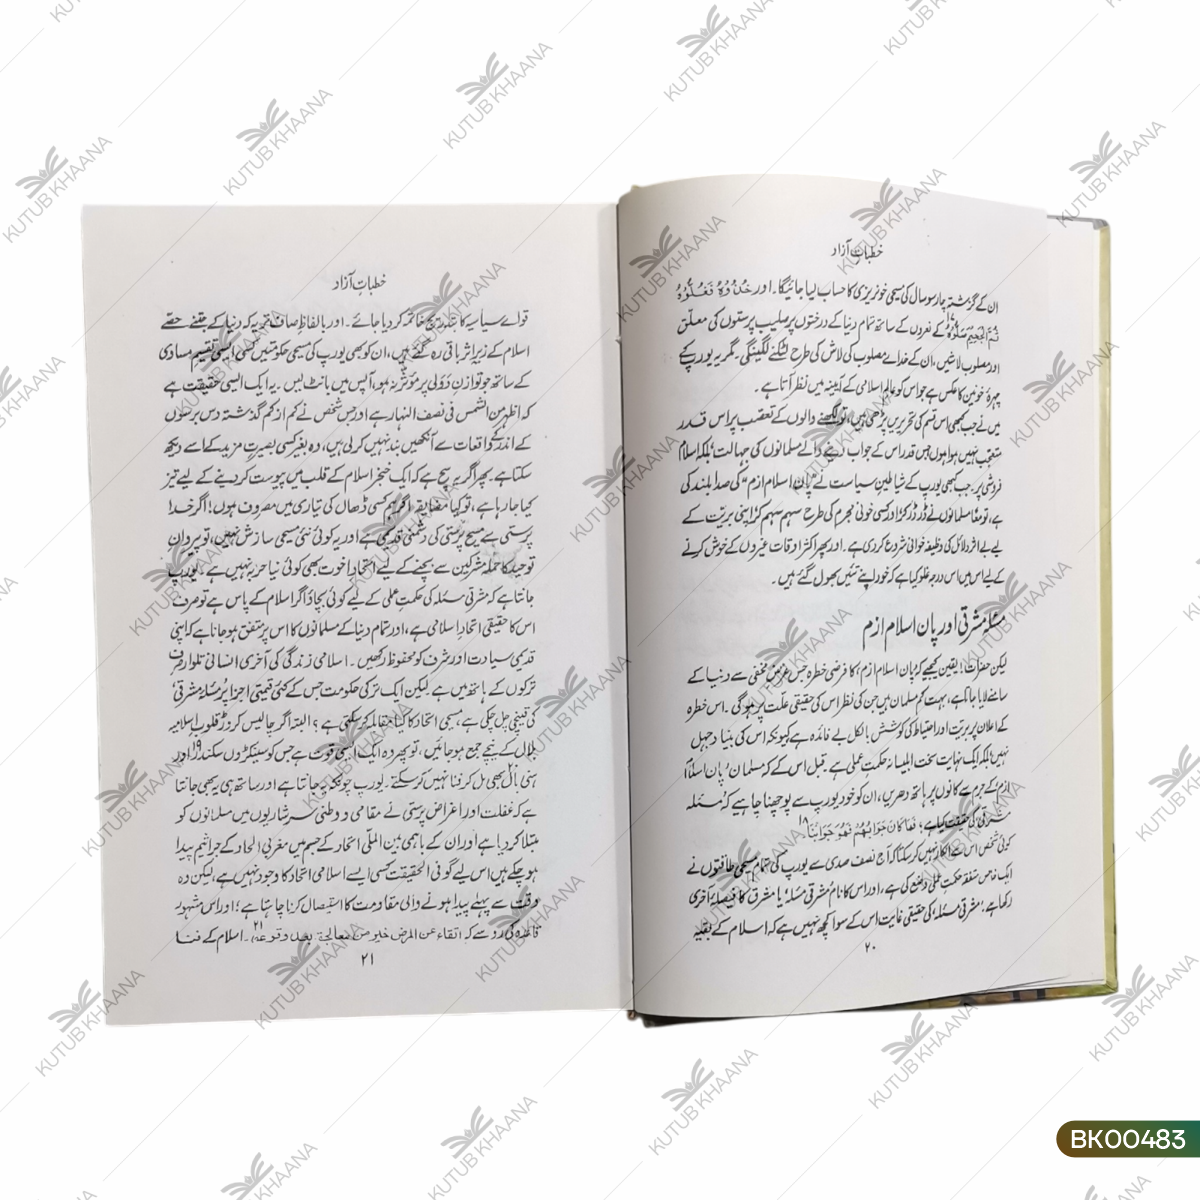 خطباتِ آزاد
ان کے گزشتہ چار سو سال کی مسیحی خونریزی کا حساب لیا جائیگا۔ اور خُذُوهُ فَغُلُّوهُ
ثُمَّ الْجَحِيمَ صَلُّوهُ کے نعروں کے ساتھ تمام دنیا کے درختوں پر صلیب پرستوں کی معلق
اور مصلوب لاشیں، ان کے خدائے مصلوب کی لاش کی طرح لٹکنے لگینگی۔ مگر یہ یورپ کے
چہرۂ خونیں کا عکس ہے جو اس کو عالم اسلامی کے آئینہ میں نظر آتا ہے۔
میں نے جب کبھی اس قسم کی تحریریں پڑھی ہیں، تو لکھنے والوں کے تعصب پر اس قدر
متعجب نہیں ہوا ہوں جس قدر اس کے جواب دینے والے مسلمانوں کی جہالت، بلکہ اسلام
فروشی پر۔ جب کبھی یورپ کے شیاطینِ سیاست نے "پان اسلام ازم" کی صدا بلند کی
ہے، تو معاً مسلمانوں نے ڈر ڈر کر اور کسی خونی مجرم کی طرح سہم سہم کر اپنی بریّت کے
لیے بے اثر دلائل کی وظیفہ خوانی شروع کردی ہے۔ اور پھر اکثر اوقات غیروں کے خوش کرنے
کے لیے اس میں اس درجہ غلو کیا ہے کہ خود اپنے تئیں بھول گئے ہیں۔
مسئلہ مشرقی اور پان اسلام ازم
لیکن حضرات! یقین کیجیے کہ پان اسلام ازم کا فرضی خطرہ جس غرضِ مخفی سے دنیا کے
سامنے لایا جاتا ہے، بہت کم مسلمان ہیں جن کی نظر اس کی حقیقی علّت پر ہوگی۔ اس خطرہ
کے اعلان پر بریّت اور احتیاط کی کوشش بالکل بے فائدہ ہے کیونکہ اس کی بنیاد جہل
نہیں بلکہ ایک نہایت سخت ابلیسانہ حکمتِ عملی ہے۔ قبل اس کے کہ مسلمان 'پان اسلام
ازم' کے جرم سے کانوں پر ہاتھ دھریں، ان کو خود یورپ سے پوچھنا چاہیے کہ 'مسئلہ
مشرقی' کی حقیقت کیا ہے؟ فَمَا كَانَ جَوَابُهُمْ فَهُوَ جَوَابُنَا ۱۸
کوئی شخص اس سے انکار نہیں کرسکتا کہ آج نصف صدی سے یورپ کی تمام مسیحی طاقتوں نے
ایک نہج متفقہ حکمتِ عملی وضع کی ہے، اور اس کا نام 'مشرقی مسئلہ' یا مشرق کا فیصلۂ آخری
رکھا ہے۔ 'مشرقی مسئلہ' کی حقیقی غایت اس کے سوا کچھ نہیں ہے کہ اسلام کے بقیہ
۲۰
خطباتِ آزاد
قوائے سیاسیہ کا بتدریج خاتمہ کر دیا جائے۔ اور بالفاظِ صاف تر یہ کہ دنیا کے جتنے حصّے
اسلام کے زیر اثر باقی رہ گئے ہیں، ان کو بھی یورپ کی مسیحی حکومتیں کسی ایسی تقسیم مساوی
کے ساتھ جو توازنِ دُوَلی پر مؤثر نہ ہو، آپس میں بانٹ لیں۔ یہ ایک ایسی حقیقت ہے
کہ اظہر من الشمس فی نصف النہار ہے اور جس شخص نے کم از کم گذشتہ دس برسوں
کے اندر کے واقعات سے آنکھیں بند نہیں کرلی ہیں، وہ بغیر کسی بصیرتِ مزید کے اسے دیکھ
سکتا ہے۔ پھر اگر یہ سچ ہے کہ ایک خنجر اسلام کے قلب میں پیوست کردینے کے لیے تیز
کیا جارہا ہے، تو کیا مضایقہ اگر ہم کسی ڈھال کی تیاری میں مصروف ہوں! اگر خدا
پرستی سے مسیح پرستی کی دشمنی قدیمی ہے اور یہ کوئی نئی مسیحی سازش نہیں، تو پیروانِ
توحید کا حملۂ مشرکین سے بچنے کے لیے اتحادِ اخوت بھی کوئی نیا حربہ نہیں ہے۔ یورپ
جانتا ہے کہ مشرقی مسئلہ کی حکمتِ عملی کے لیے کوئی بچاؤ اگر اسلام کے پاس ہے تو صرف
اس کا حقیقی اتحادِ اسلامی ہے، اور تمام دنیا کے مسلمانوں کا اس پر متفق ہوجانا ہے کہ اپنی
قدیمی سیادت اور شرف کو محفوظ رکھیں۔ اسلامی زندگی کی آخری انسانی تلوار صرف
ترکوں کے ہاتھ میں ہے لیکن ایک ترکی حکومت جس کے کئی قیمتی اجزا پر 'مسئلۂ مشرقی'
کی قینچی چل چکی ہے، مسیحی اتحاد کا کیا مقابلہ کرسکتی ہے؟ البتہ اگر چالیس کروڑ قلوبِ اسلامیہ
ہلال کے نیچے جمع ہوجائیں، تو پھر وہ ایک ایسی قوت ہے جس کو سینکڑوں سکندر ۱۹ اور
ہنی بال بھی مل کر فنا نہیں کرسکتے۔ یورپ چونکہ یہ جانتا ہے اور ساتھ ہی یہ بھی جانتا
ہے کہ غفلت اور اغراض پرستی نے مقامی و وطنی سرشاریوں میں مسلمانوں کو
مبتلا کر دیا ہے اور ان کے باہمی بین المللی اتحاد کے جسم میں مغربی الحاد کے جراثیم پیدا
ہوچکے ہیں، اس لیے گو فی الحقیقت کسی ایسے اسلامی اتحاد کا وجود نہیں ہے، لیکن وہ
وقت سے پہلے پیدا ہونے والی مقاومت کا استیصال کرنا چاہتا ہے؛ اور اس مشہور
قاعدہ کی رو سے کہ اتقاء عن المرض خیر من معالجۃ بعد وقوعہ ۲۱۔ اسلام کے فنا
۲۱
BK00483